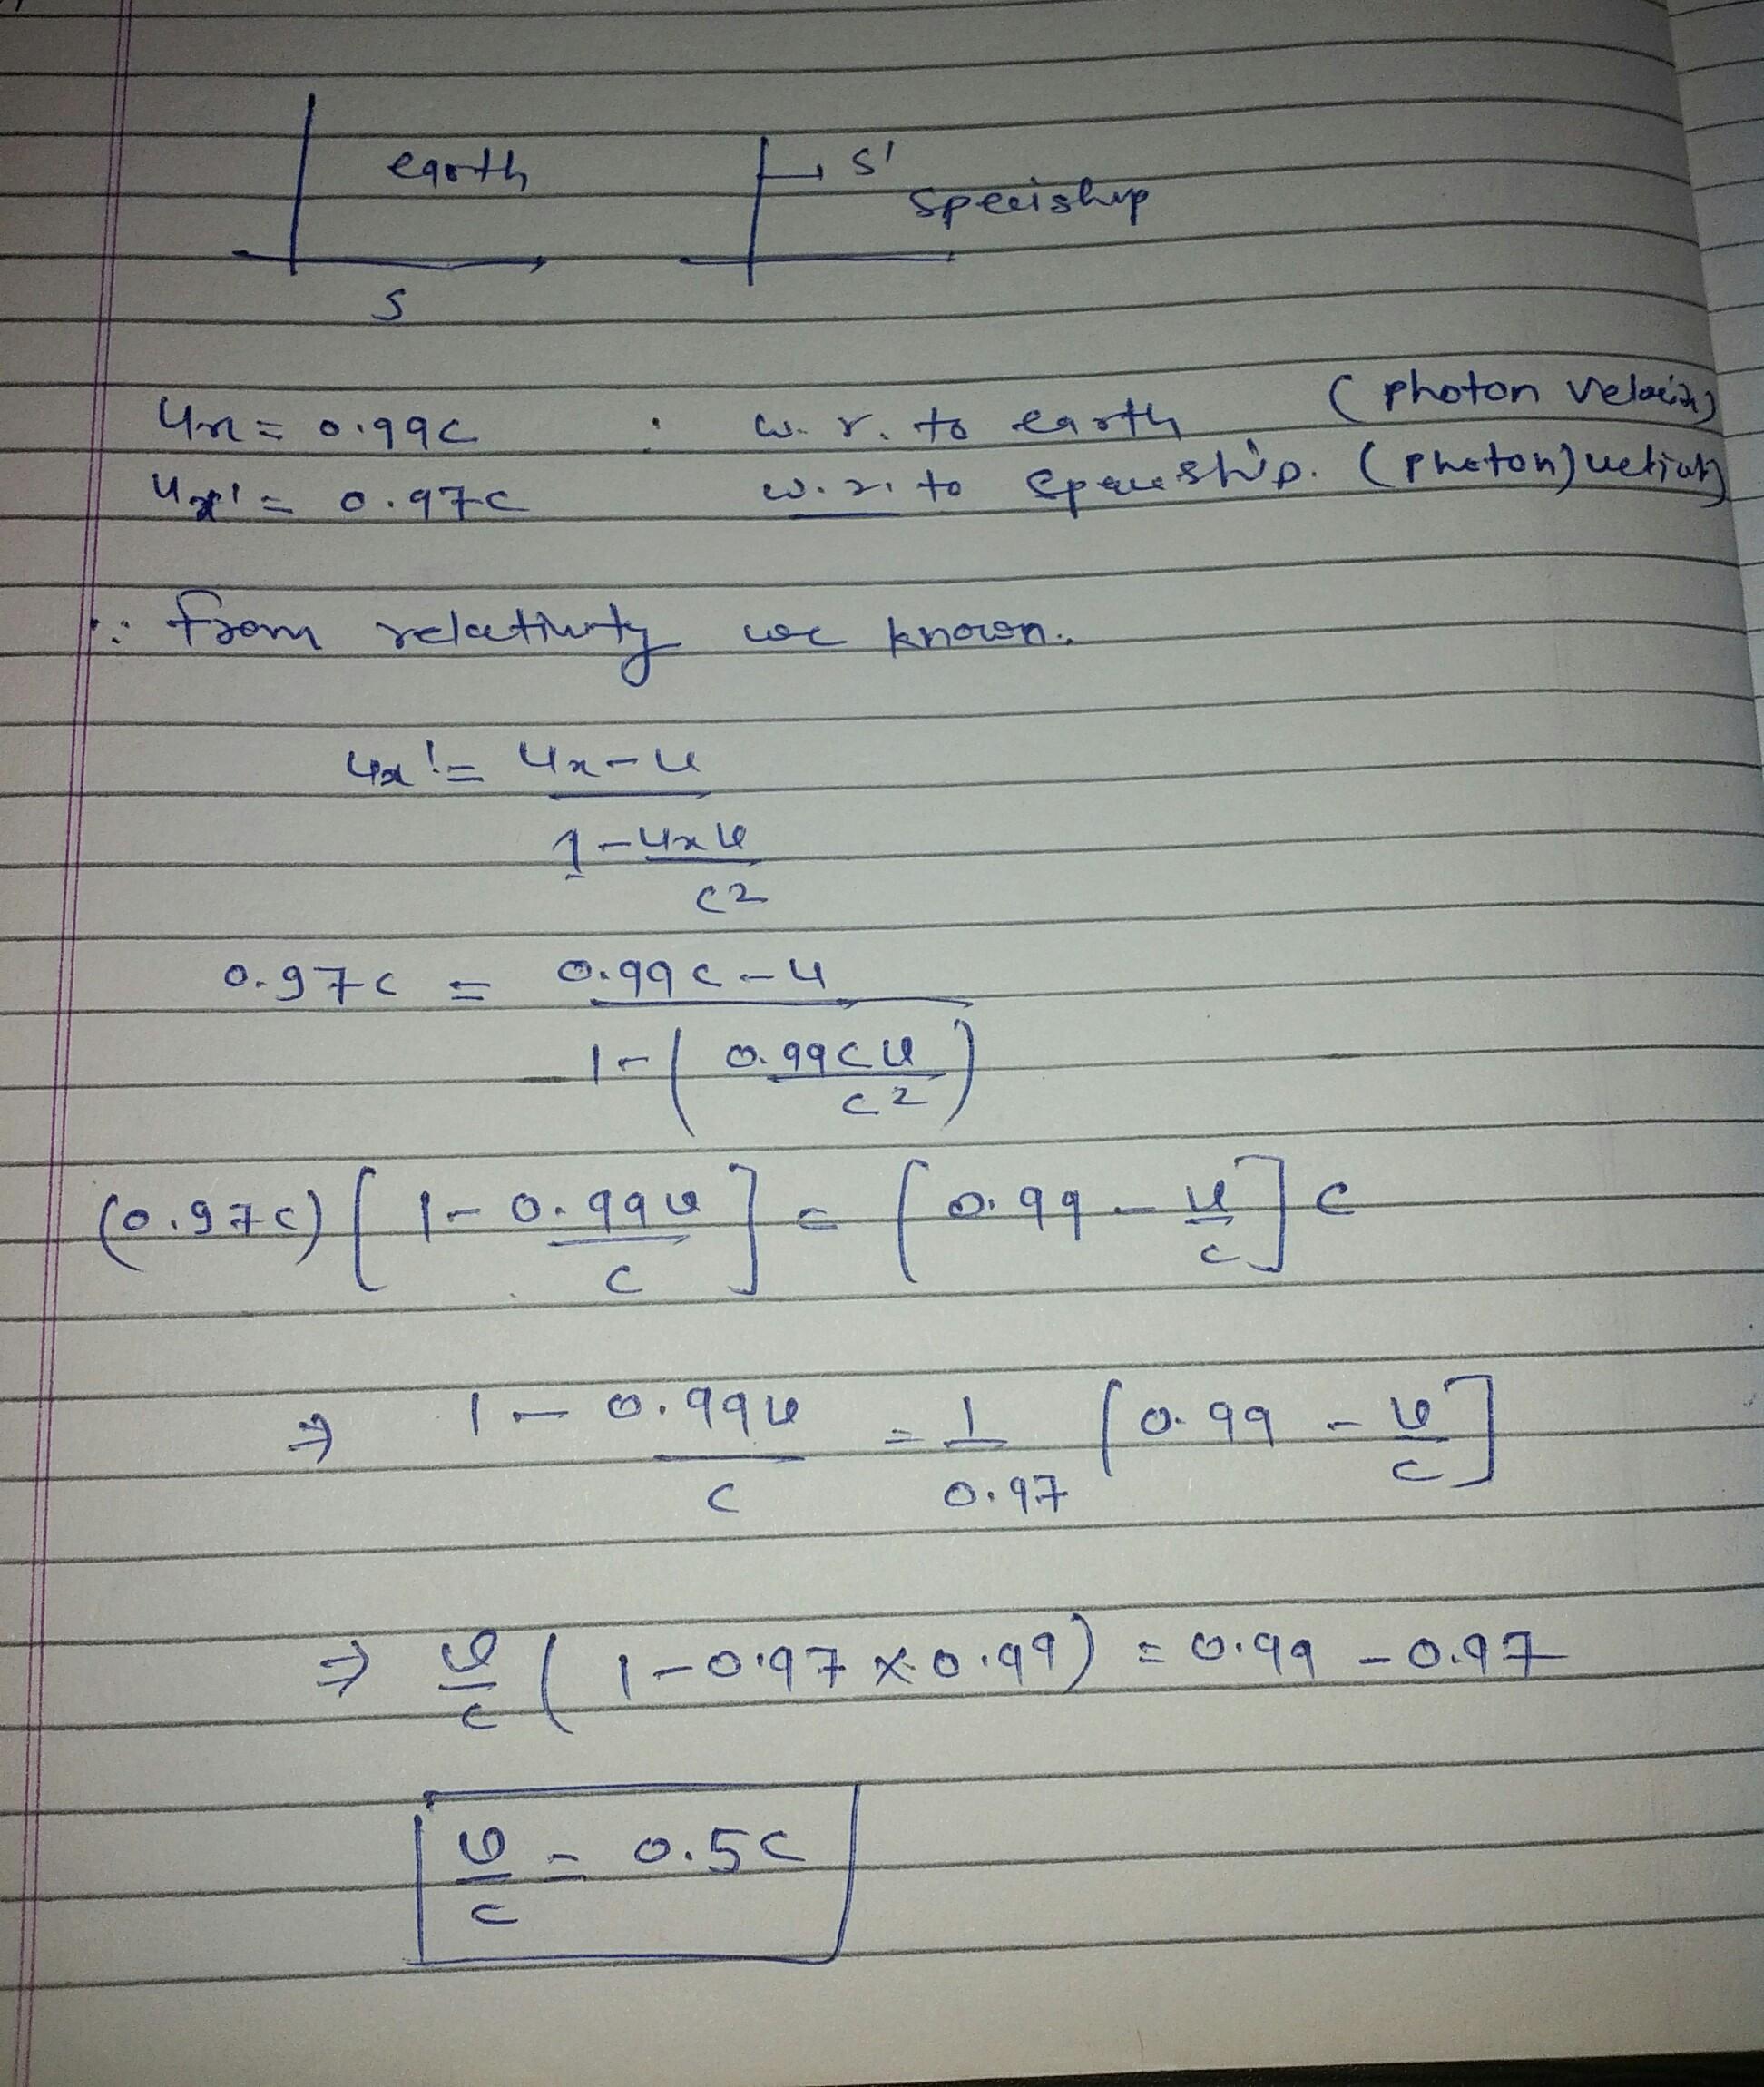 earth
S'
speciship
S
ux = 0.99c : w. r. to earth (photon velocity)
ux' = 0.97c w.r. to spaceship. (photon)
∵ from relativity we known.
ux' = ux - u
1 - ux u
c2
0.97c = 0.99c - u
1 - ( 0.99cu )
c2
(0.97c) [ 1 - 0.99u ] = [ 0.99 - u ] c
c c
⇒ 1 - 0.99u = 1 [ 0.99 - u ]
c 0.97 c
⇒ u ( 1 - 0.97 x 0.99 ) = 0.99 - 0.97
c
u = 0.5c
c